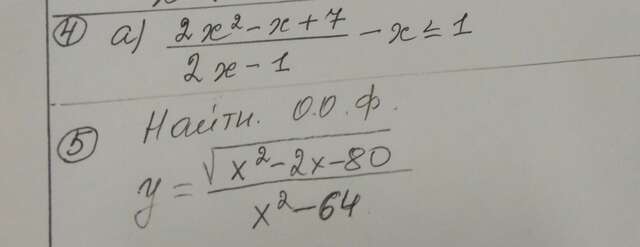 ④ а) (2x² - x + 7)/(2x - 1) - x ≤ 1
⑤ Найти О.О.Ф.
y = √(x² - 2x - 80)/(x² - 64)